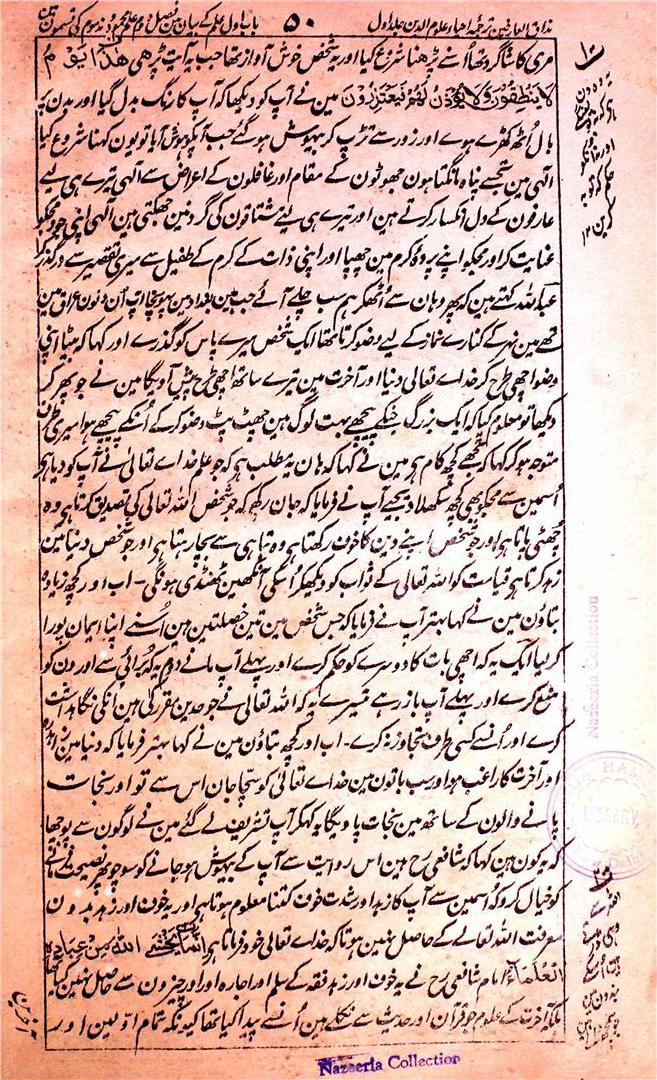 مذاق العارفین ترجمہ احیاء علوم الدین جلد اول ۵۰ باب اول علم کے بیان مین فصل دوم علم محمود و مذموم کی قسمون مین
مری کا شاگرد تھا اُسنے پڑھنا شروع کیا اور یہ شخص خوش آواز تھا جب یہ آیت پڑھی هٰذَا يَوْمُ
لَا يَنْطِقُوْنَ وَلَا يُؤْذَنُ لَهُمْ فَيَعْتَذِرُوْنَ مین نے آپ کو دیکھا کہ آپ کا رنگ بدل گیا اور بدن پر
بال اُٹھ کھڑے ہوے اور زور سے تڑپ کر بیہوش ہو گئے جب آپکو ہوش آیا تو یون کہنا شروع کیا
الٰہی مین تجھسے پناہ مانگتا ہون جھوٹون کے مقام اور غافلون کے اعراض سے الٰہی تیرے ہی لیے
عارفون کے دل انکسار کرتے ہین اور تیرے ہی لیے مشتاقون کی گردنین جھکتی ہین الٰہی اپنی جود مجھکو
عنایت کر اور مجکو اپنے پردۂ کرم مین چھپا اور اپنی ذات کے کرم کے طفیل سے میری تقصیر سے درگذر کر
عبداللہ کہتے ہین کہ پھر وہان سے اُٹھکر ہم سب چلے آئے جب مین بغداد مین پہونچا اور آپ اُن دنون عراق مین
تھے مین نہر کے کنارے نماز کے لیے وضو کرتا تھا ایک شخص میرے پاس کو گذرے اور کہا کہ بیٹا اپنی
وضو اچھی طرح کر خداے تعالی دنیا اور آخرت مین تیرے ساتھ اچھی طرح پیش آویگا مین نے جو پھر کر
دیکھا تو معلوم کیا کہ ایک بزرگ جنکے پیچھے بہت لوگ ہین جھٹ پٹ وضو کر کے اُنکے پیچھے ہوا میری طرف
متوجہ ہو کر کہا کہ تجھے کچھ کام ہے مین نے کہا کہ ہان یہ مطلب ہے کہ جو علم خداے تعالیٰ نے آپ کو دیا ہے
اُسمین سے مجکو بھی کچھ سکھلا دیجیے آپ نے فرمایا کہ جان رکھ کہ جو شخص اللہ تعالی کی تصدیق کرتا ہے وہ
چھٹی پاتا ہے اور جو شخص اپنے دین کا خوف رکھتا ہے وہ تباہی سے بچا رہتا ہے اور جو شخص دنیا مین
زہد کرتا ہے قیامت کو اللہ تعالی کے ثواب کو دیکھ کر اُسکی آنکھین ٹھنڈی ہونگی ۔ اب اور کچھ زیادہ
بتاؤن مین نے کہا بہتر آپ نے فرمایا کہ جس شخص مین تین خصلتین ہین اُسنے اپنا ایمان پورا
کر لیا ایک یہ کہ اچھی بات کا دوسرے کو حکم کرے اور پہلے آپ مانے دوم یہ کہ برائی سے اورون کو
منع کرے اور پہلے آپ باز رہے تیسرے یہ کہ اللہ تعالیٰ نے جو حدین مقرر کی ہین اُنکی نگاہداشت
کرے اور اُنسے کسی طرف متجاوز نہ کرے ۔ اب اور کچھ بتاؤن مین نے کہا بہتر فرمایا کہ دنیا مین زاہد
اور آخرت کا راغب ہو اور سب باتون مین خداے تعالیٰ کو سچا جان اس سے تو اور نجات
پانے والون کے ساتھ مین نجات پاویگا یہ کہکر آپ تشریف لے گئے مین نے لوگون سے پوچھا
کہ یہ کون ہین کہا کہ شافعی رح ہین اس روایت سے آپ کے بیہوش ہو جانے کو سوچو پھر نصیحت فرمانے
کو خیال کرو کہ اُسمین سے آپ کا زہد اور شدت خوف کتنا معلوم ہوتا ہے اور یہ خوف اور زہد بدون
معرفت اللہ تعالے کے حاصل نہین ہوتا کہ خداے تعالی خود فرماتا ہے اِنَّمَا يَخْشَى اللّٰهَ مِنْ عِبَادِهِ
الْعُلَمَاءُ امام شافعی رح نے یہ خوف اور زہد فقہ کے سلم اور اجارہ اور اور چیزون سے حاصل نہین کیا تھا
بلکہ آخرت کے علوم جو قرآن اور حدیث سے نکلے ہین اُنسے پیدا کیا تھا کیونکہ تمام اولین اور
Nazeeria Collection
Nazeeria Collection